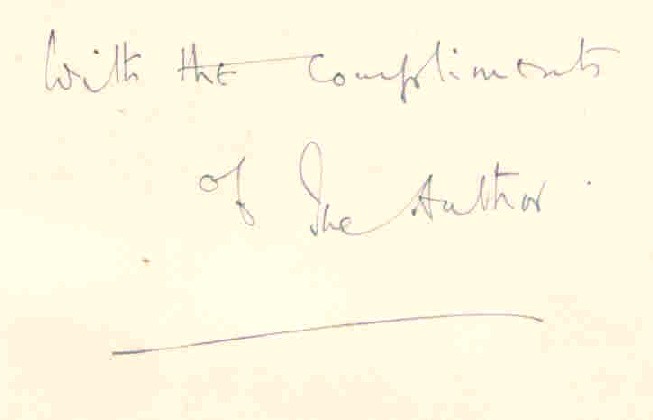 With the Compliments
of The Author.